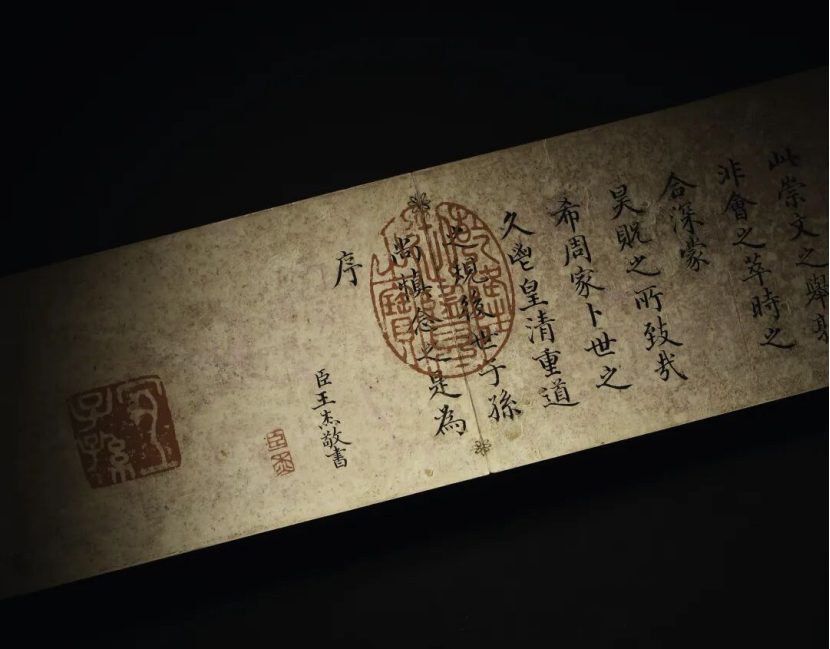 此崇文之舉孰
非會之萃時之
合深蒙
昊貺之所致哉
希周家卜世之
久鬯皇清重道
之規後世子孫
尚慎念之是為
序
臣王杰敬書
臣杰
宜子孫